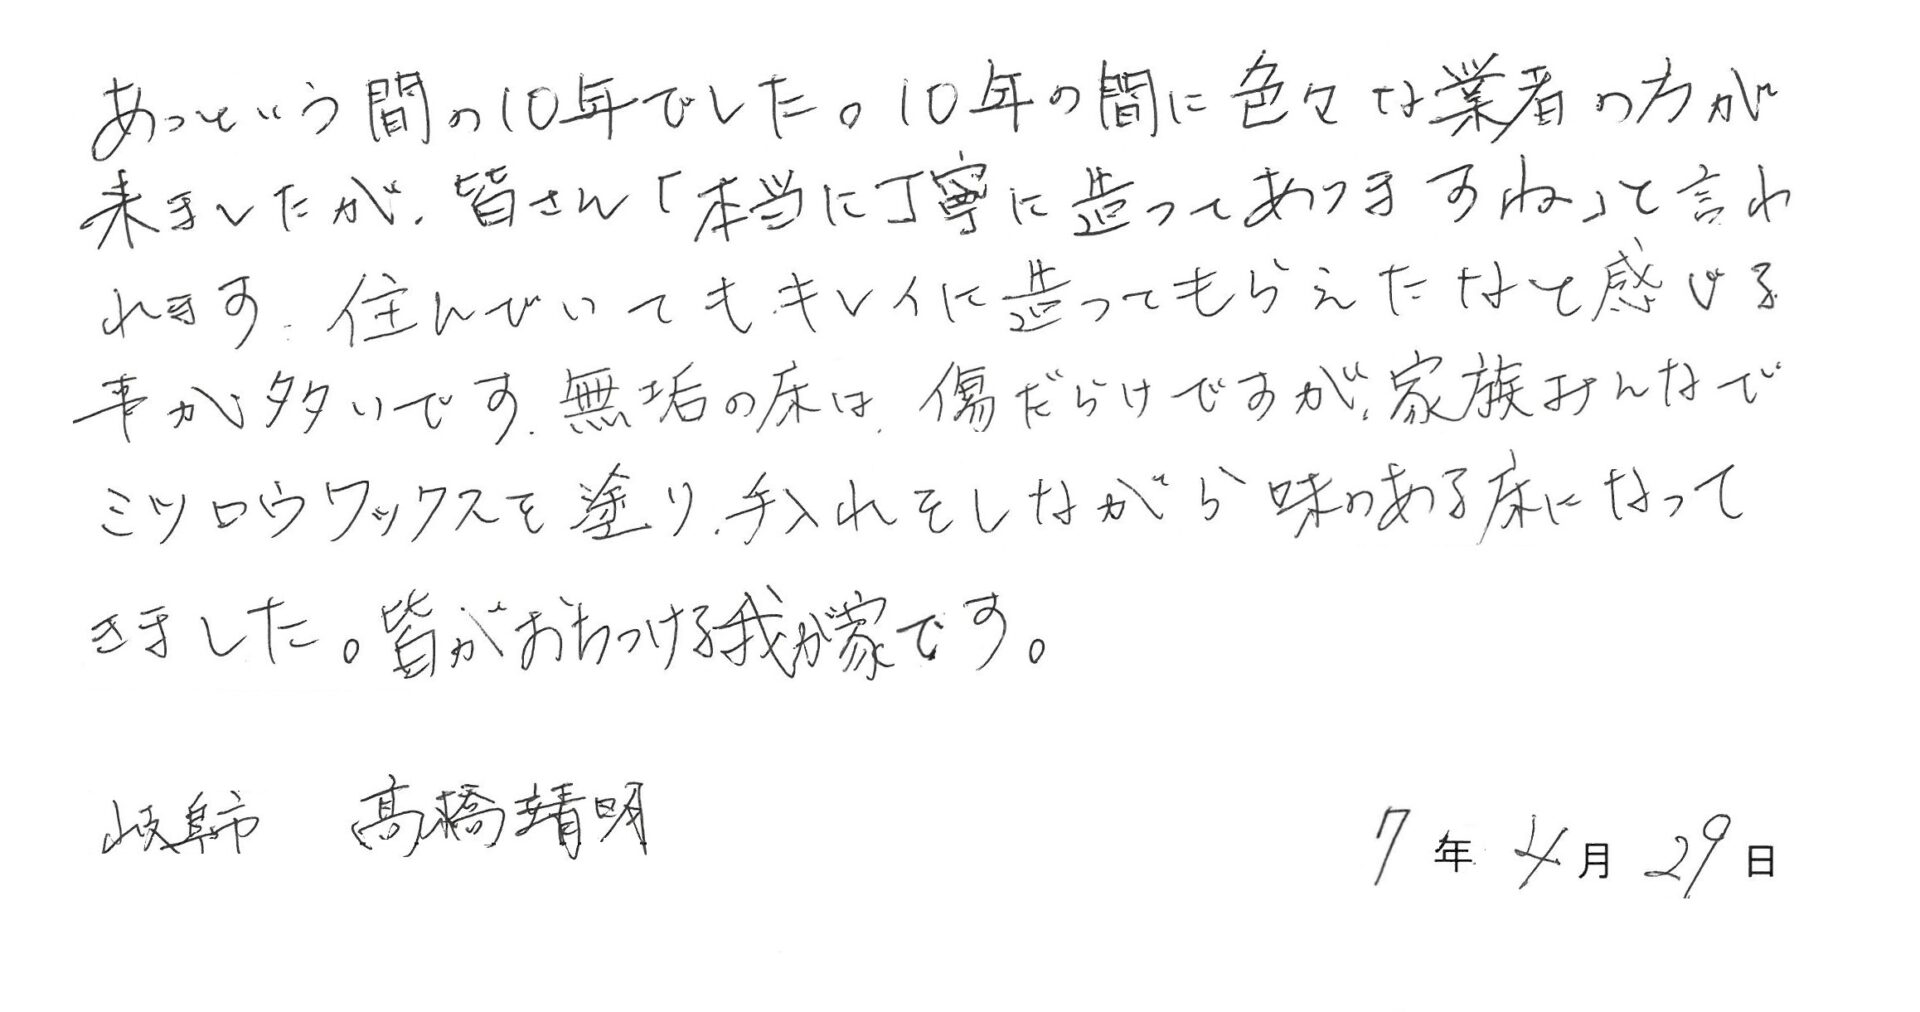 あっという間の10年でした。10年の間に色々な業者の方が
来ましたが、皆さん「本当に丁寧に造ってありますね」と言わ
れます。住んでいてもキレイに造ってもらえたなと感じる
事が多いです。無垢の床は、傷だらけですが、家族みんなで
ミツロウワックスを塗り、手入れをしながら味のある床になって
きました。皆がおちつける我が家です。
岐阜市 髙橋靖明
7年4月29日